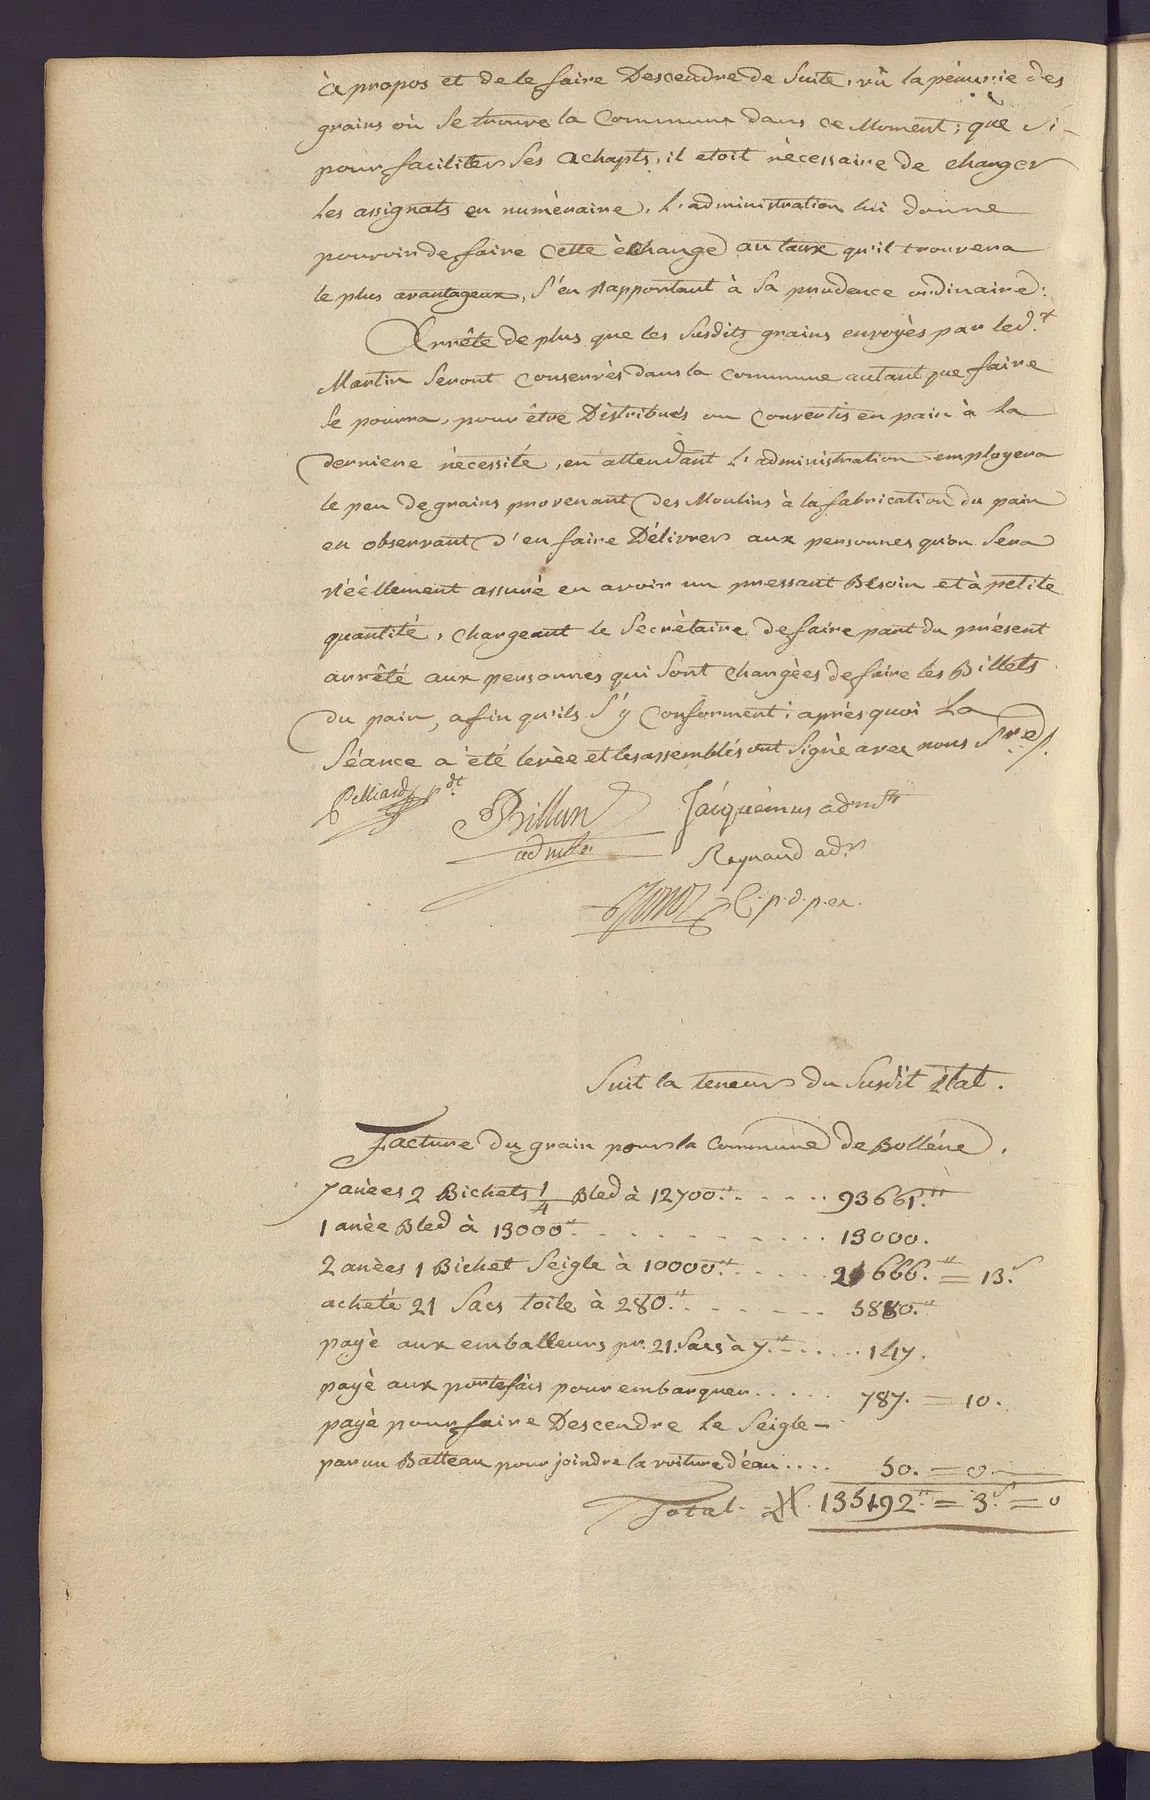 à propos et de le faire Descendre de Suite, vû la pénurie des
grains où se trouve la Commune dans ce Moment; que Si
pour faciliter Ses achapts, il etoit nécessaire de changer
les assignats en numèraire, L'administration lui donne
pouvoir de faire Cette èchange au taux qu'il trouvera
le plus avantageux, S'en rapportant à Sa prudence ordinaire:
Arrête de plus que les Susdits grains envoyès par led.t
Martin Seront Conservès dans la Commune autant que faire
Se pourra, pour être Distribués ou Convertis en pain à la
derniere nécessité, en attendant L'administration employera
le peu de grains provenant des Moulins à la fabrication du pain
en observant d'en faire Délivrer aux personnes qu'on Sera
réèllement assuré en avoir un pressant Besoin et à petite
quantité, Chargeant le Secrètaire de faire part du présent
arrêté aux personnes qui Sont Chargées de faire les Billets
du pain, afin qu'ils S'y Conforment; aprés quoi La
Séance a été levée et les assemblés ont Signè avec nous S.re
Pelliard p.dt
Billun Jacquemus adm.tr
adm.tr
Reynaud ad.r
C. p. d. p. ex.
Suit la teneur du Susdit état.
Facture du grain pour la Commune de Bolléne.
7 anées 2 Bichets 1/4 Bled à 12700.tt . . . . . 93661.tt
1 anée Bled à 13000tt . . . . . . . . . . 13000.
2 anées 1 Bichet Seigle à 10000.tt . . . . . 21666.tt = 13.s
acheté 21 Sacs toile à 280.tt . . . . . . . 5880.tt
payè aux emballeurs pr. 21. Sacs à 7.tt . . . . . . 147.
payè aux portefàis pour embarquer . . . . . 787. = 10.
payè pour faire Descendre le Seigle –
par un Batteau pour joindre la voiture d'éau . . . . 50. = 0.
Total. 135192.tt = 3.s = 0